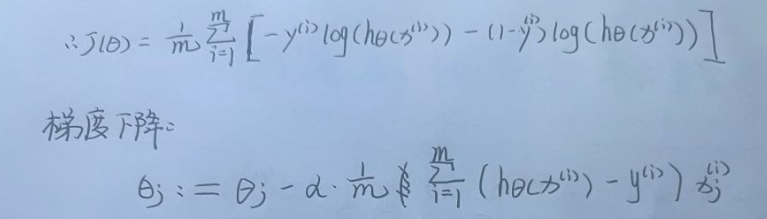 ∴J(θ) = 1/m ∑_{i=1}^{m} [-y^{(i)} log(hθ(x^{(i)})) - (1-y^{(i)}) log(hθ(x^{(i)}))]
梯度下降:
θj := θj - α · 1/m ∑_{i=1}^{m} (hθ(x^{(i)}) - y^{(i)}) x_j^{(i)}